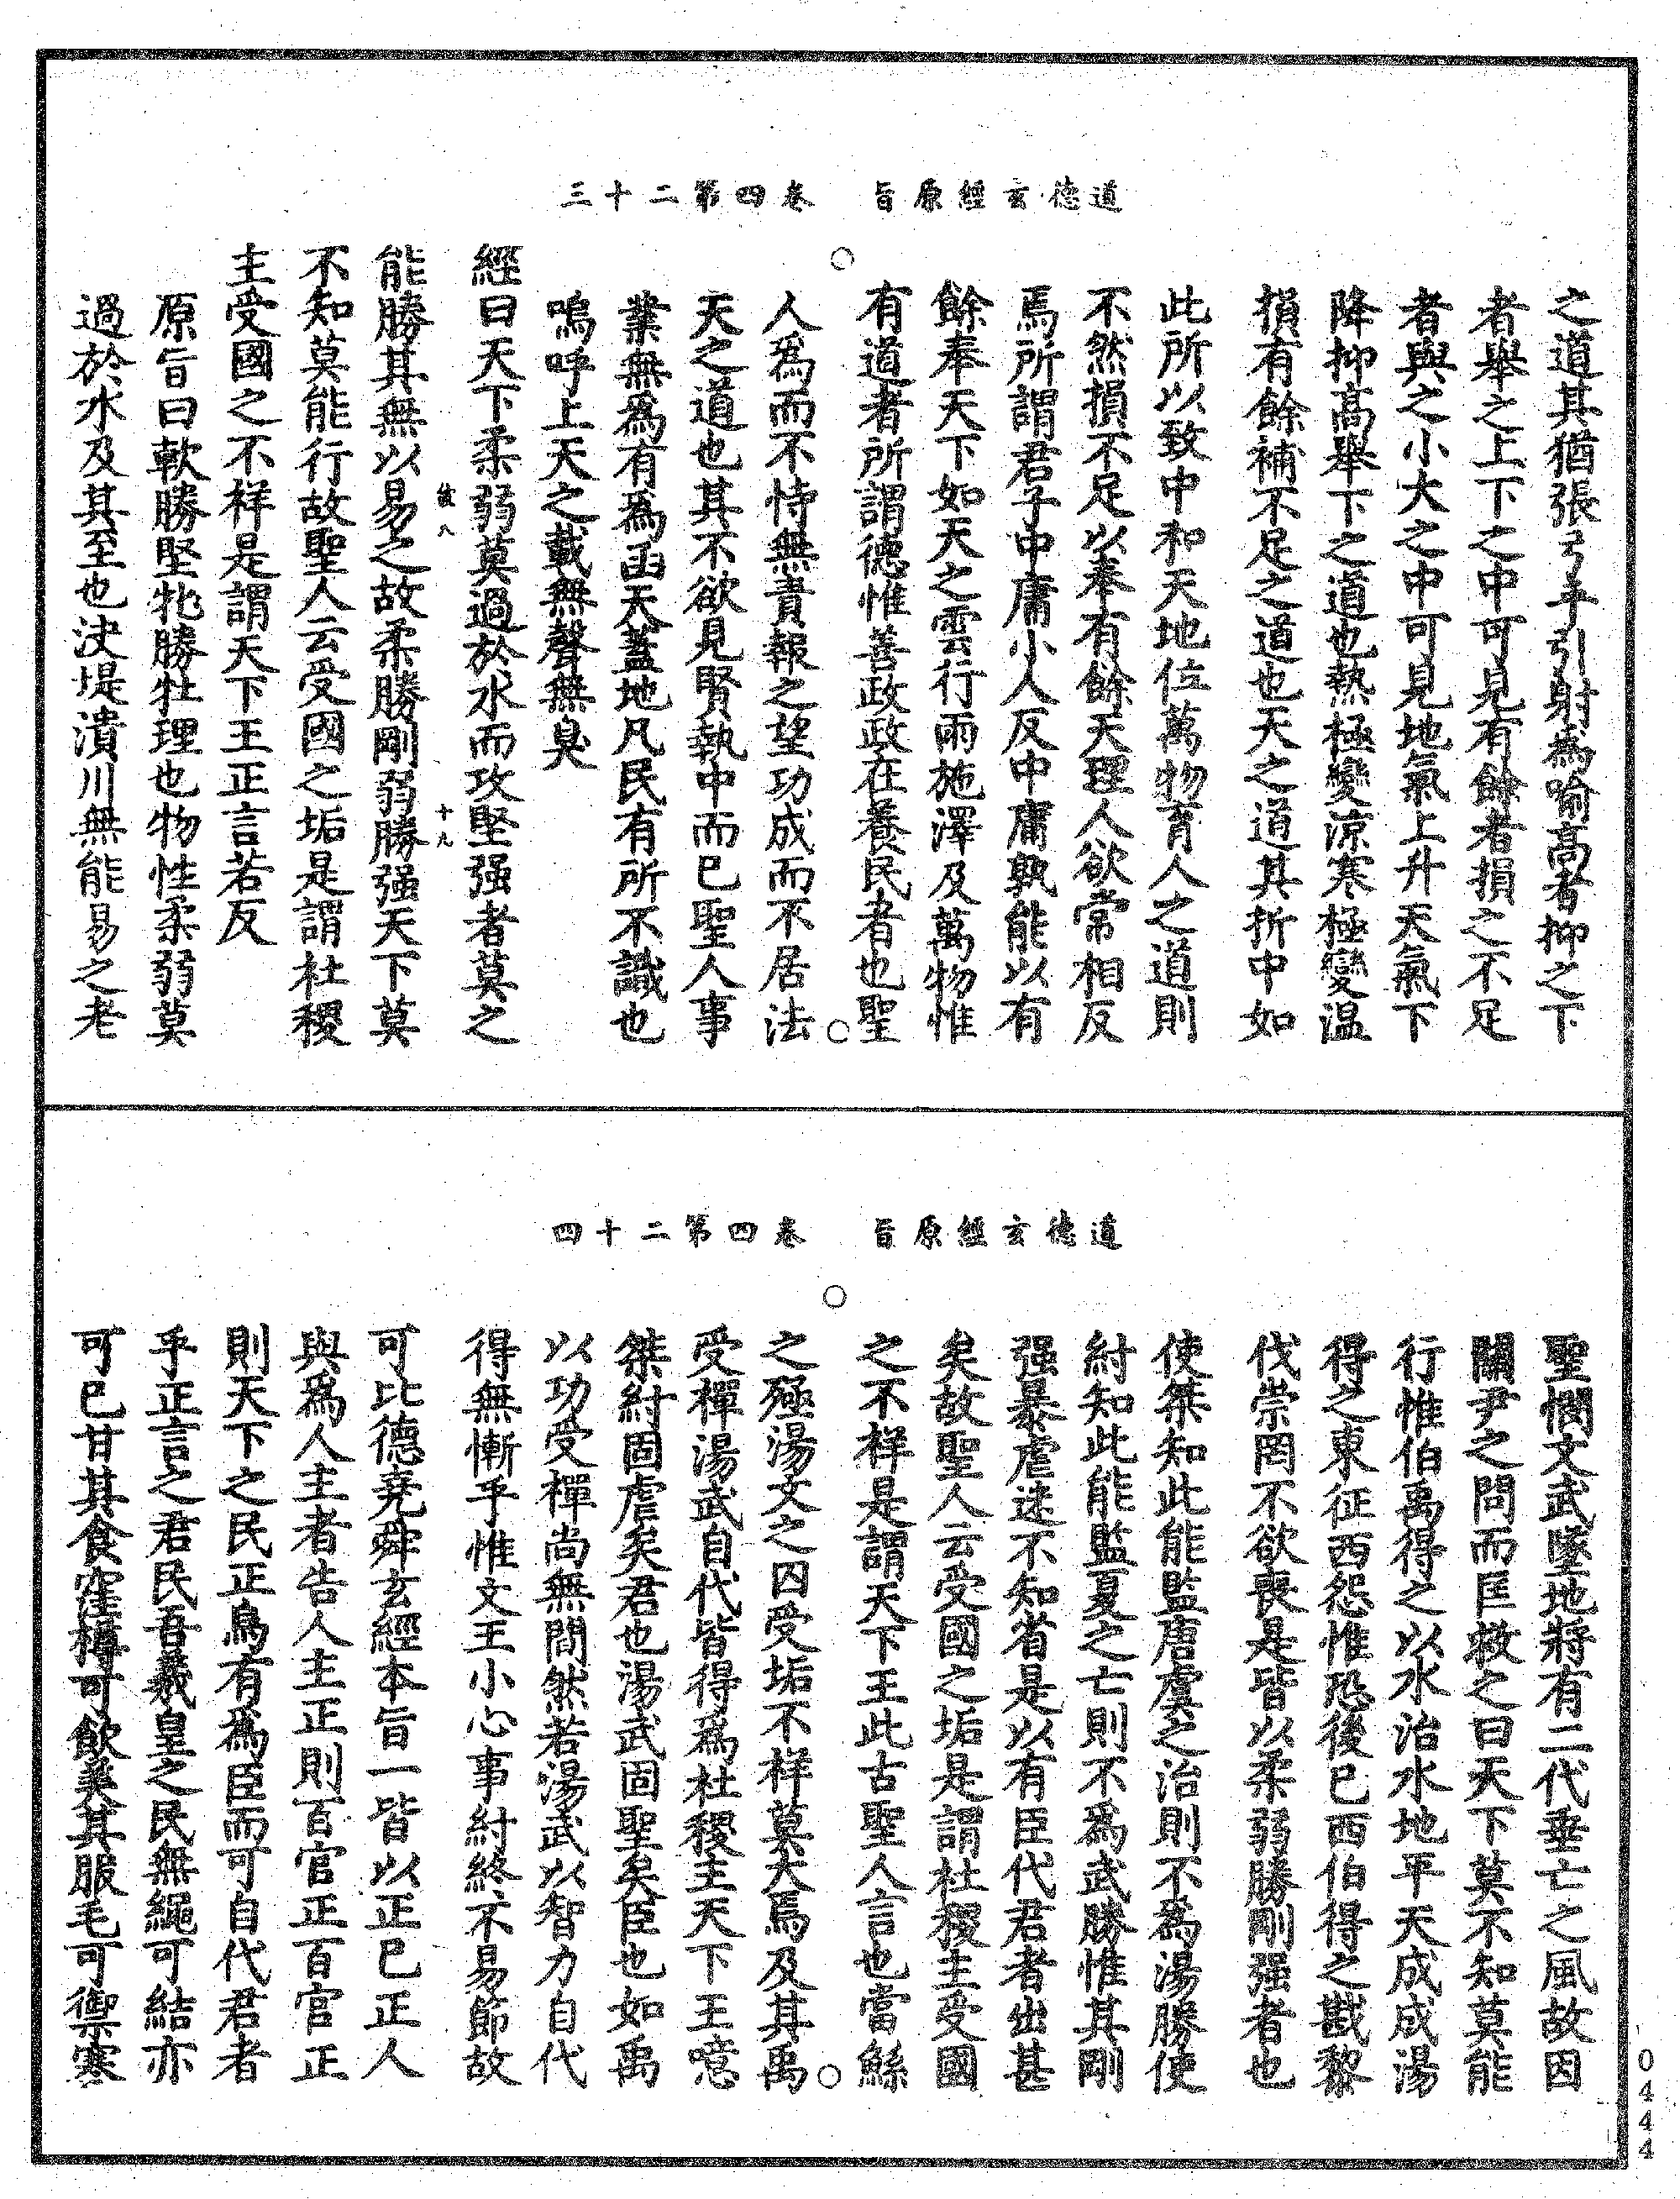 道德玄經原旨　卷四第二十三
之道其猶張弓乎引射爲喻高者抑之下
者舉之上下之中可見有餘者損之不足
者與之小大之中可見地氣上升天氣下
降抑高舉下之道也熱極變涼寒極變温
損有餘補不足之道也天之道其折中如
此所以致中和天地位萬物育人之道則
不然損不足以奉有餘天理人欲常相反
焉所謂君子中庸小人反中庸孰能以有
餘奉天下如天之雲行雨施澤及萬物惟
有道者所謂德惟善政政在養民者也聖
人爲而不恃無責報之望功成而不居法
天之道也其不欲見賢執中而已聖人事
業無爲有爲函天蓋地凡民有所不識也
嗚呼上天之載無聲無臭
經曰天下柔弱莫過於水而攻堅强者莫之
彼八　十九
能勝其無以易之故柔勝剛弱勝强天下莫
不知莫能行故聖人云受國之垢是謂社稷
主受國之不祥是謂天下王正言若反
原旨曰軟勝堅牝勝牡理也物性柔弱莫
過於水及其至也決堤潰川無能易之老
道德玄經原旨　卷四第二十四
聖憫文武墜地將有二代垂亡之風故因
關尹之問而匡救之曰天下莫不知莫能
行惟伯禹得之以水治水地平天成成湯
得之東征西怨惟恐後已西伯得之戡黎
伐崇罔不欲喪是皆以柔弱勝剛强者也
使桀知此能監唐虞之治則不爲湯勝使
紂知此能監夏之亡則不爲武勝惟其剛
强暴虐迷不知省是以有臣代君者出甚
矣故聖人云受國之垢是謂社稷主受國
之不祥是謂天下王此古聖人言也當鯀
之殛湯文之囚受垢不祥莫大焉及其禹
受禪湯武自代皆得爲社稷主天下王噫
桀紂固虐矣君也湯武固聖矣臣也如禹
以功受禪尚無間然若湯武以智力自代
得無慚乎惟文王小心事紂終不易節故
可比德堯舜玄經本旨一皆以正已正人
與爲人主者告人主正則百官正百官正
則天下之民正烏有爲臣而可自代君者
乎正言之君民吾羲皇之民無繩可結亦
可已甘其食窪樽可飲美其服毛可禦寒
0444